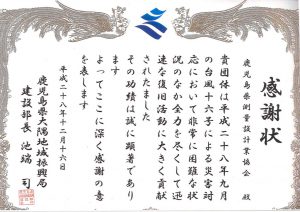 感謝状
鹿児島県測量設計業協会 殿
貴団体は平成二十八年九月
の台風十六号による災害対
応において非常に困難な状
況のなか全力を尽くして迅
速な復旧活動に大きく貢献
されました
その功績は誠に顕著であり
ます
よってここに深く感謝の意
を表します
平成二十八年十二月十六日
鹿児島県大隅地域振興局
建設部長 池端 司